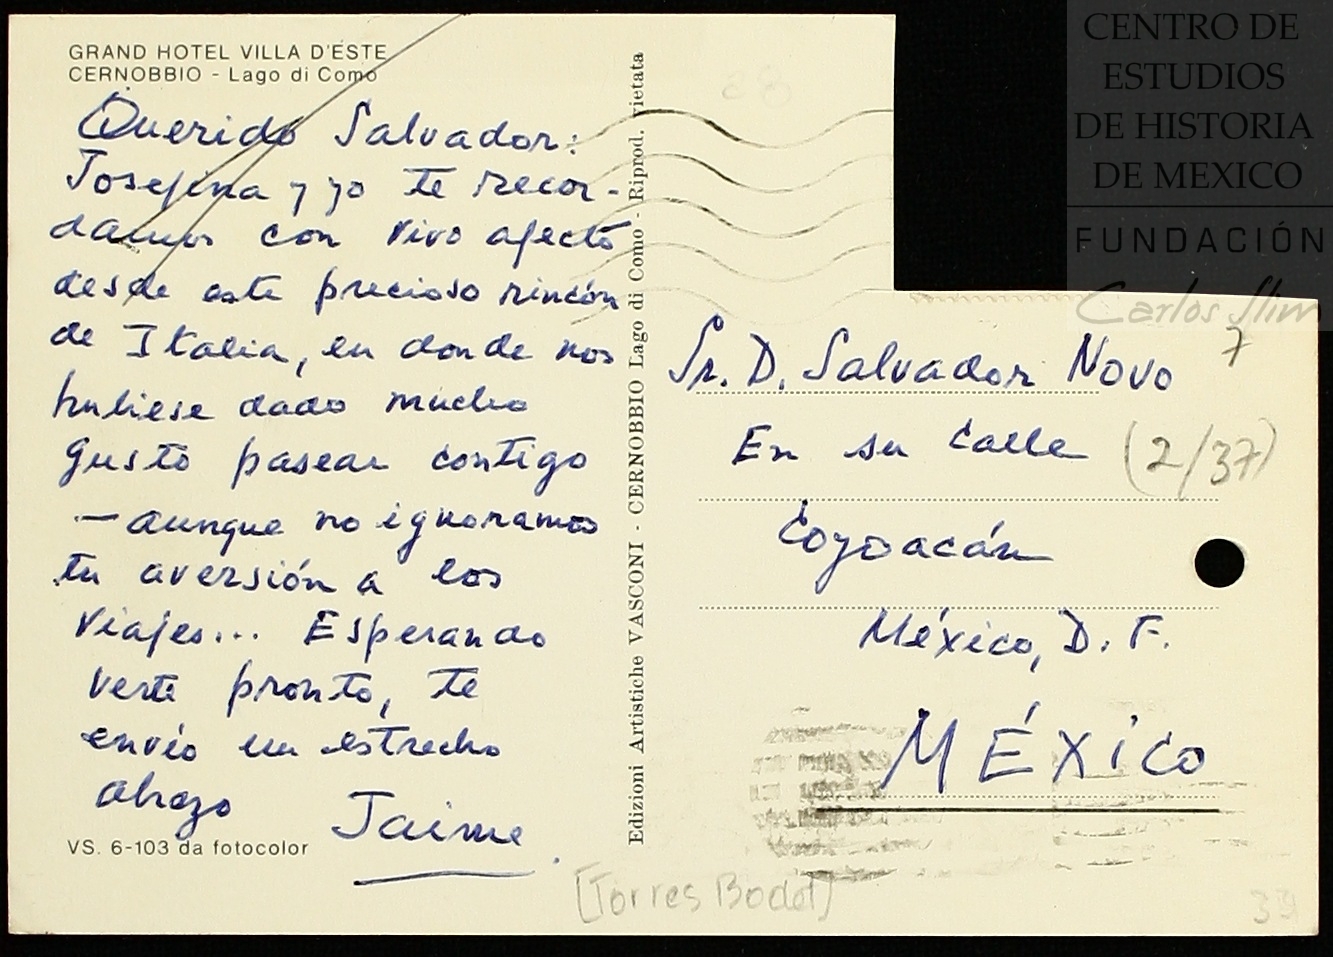 GRAND HOTEL VILLA D'ESTE
CERNOBBIO - Lago di Como
Querido Salvador:
Josefina y yo te recor-
damos con vivo afecto
desde este precioso rincón
de Italia, en donde nos
hubiese dado mucho
gusto pasear contigo
—aunque no ignoramos
tu aversión a los
viajes... Esperando
verte pronto, te
envío un estrecho
abrazo Jaime
VS. 6-103 da fotocolor
Edizioni Artistiche VASCONI - CERNOBBIO Lago di Como - Riprod. vietata
Sr. D. Salvador Novo
7
En su Calle
(2/37)
Coyoacán
México, D. F.
MÉXICO
[Torres Bodet]
39
CENTRO DE
ESTUDIOS
DE HISTORIA
DE MEXICO
FUNDACIÓN
Carlos Slim